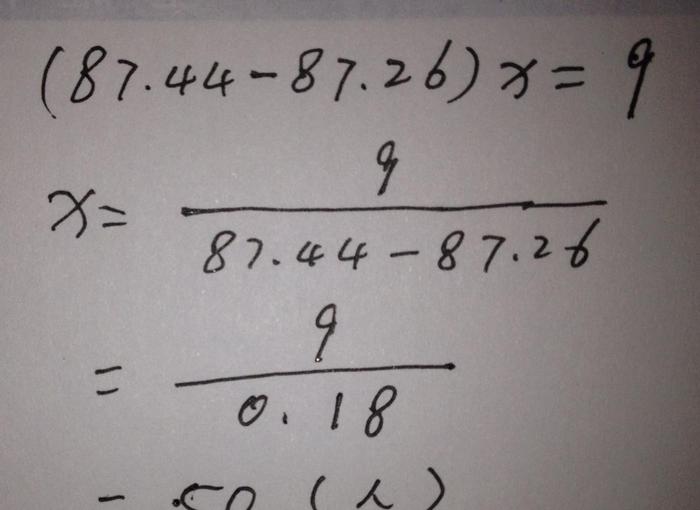 (87.44-87.26)x=9
x= 9/(87.44-87.26)
= 9/0.18
= 50(人)